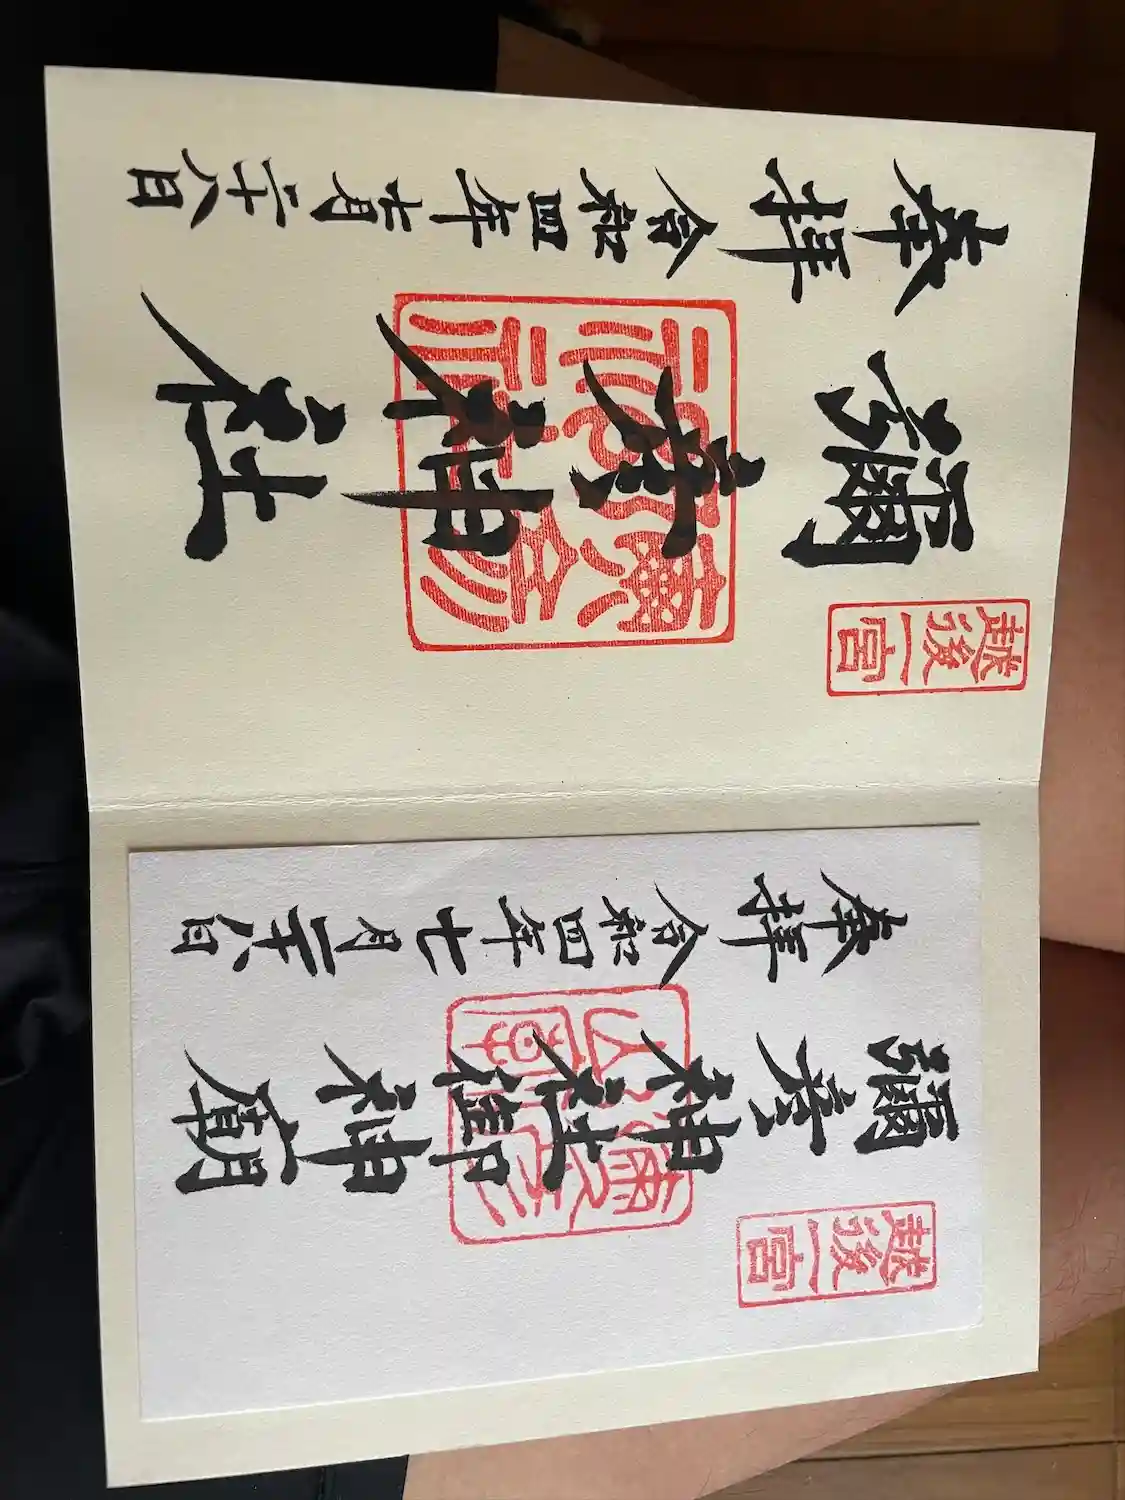 越後一宮
彌彦神社御神廟
奉拝 令和四年七月二十八日
越後一宮
彌彦神社
奉拝 令和四年七月二十八日